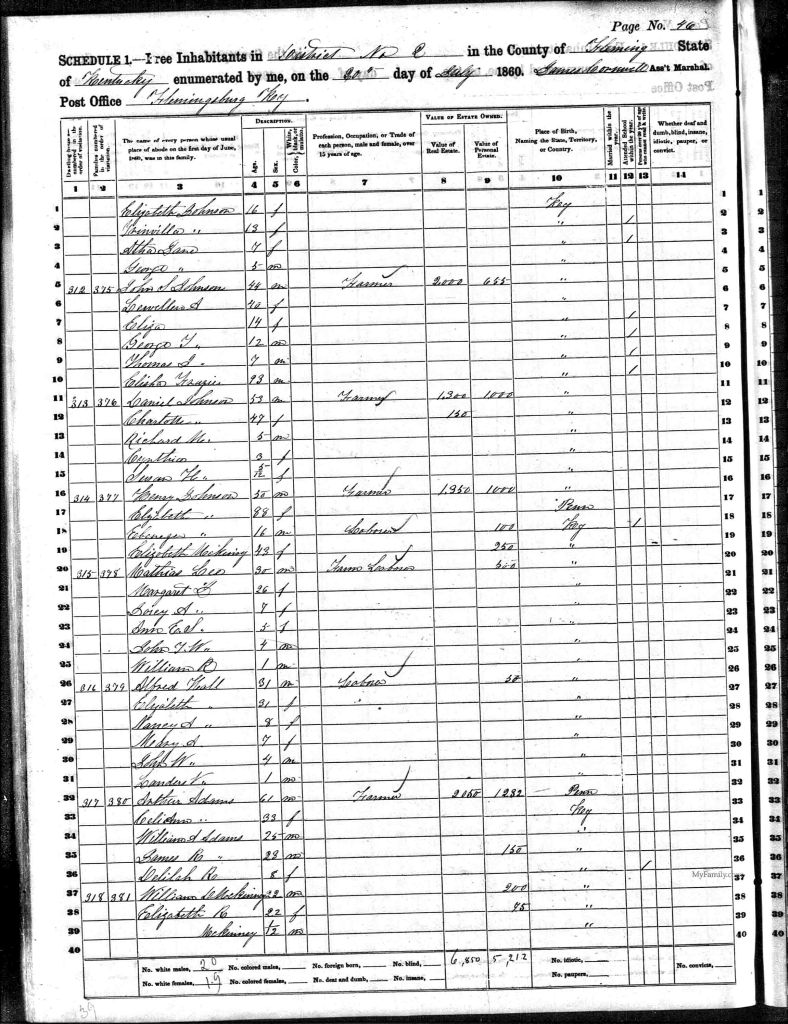 Page No. 46
SCHEDULE 1.—Free Inhabitants in District No 2 in the County of Fleming State
of Kentucky enumerated by me, on the 20 day of July 1860. James Ass't Marshal.
Post Office Flemingsburg Key.
DESCRIPTION. VALUE OF ESTATE OWNED.
Dwelling-houses—numbered in the order of visitation. Families numbered in the order of visitation. The name of every person whose usual place of abode on the first day of June, 1860, was in this family. Age. Sex. Color, White, black, or mulatto. Profession, Occupation, or Trade of each person, male and female, over 15 years of age. Value of Real Estate. Value of Personal Estate. Place of Birth, Naming the State, Territory, or Country. Married within the year. Attended School within the year. Persons over 20 y'rs of age who cannot read & write. Whether deaf and dumb, blind, insane, idiotic, pauper, or convict.
1 2 3 4 5 6 7 8 9 10 11 12 13 14
1 Elizabeth Johnson 16 f Key 1
2 " 13 f " 1 2
3 Jane 7 f " 1 3
4 George " 5 m " 4
5 312 375 John S Johnson 44 m Farmer 2,000 655 " 5
6 A 40 f " 6
7 Eliza 14 f " 1 7
8 George T " 12 m " 1 8
9 Thomas " 7 m " 1 9
10 Elisha Frazier 23 m " 1 10
11 313 376 Daniel Johnson 53 m Farmer 1,300 1000 " 11
12 Charlotte " 47 f 150 " 12
13 Richard 5 m " 13
14 Cynthia 3 f " 14
15 Susan H " 5/12 f " 15
16 314 377 Henry Johnson 50 m Farmer 1,350 1000 " 16
17 Elizabeth " 88 f Penn 17
18 Ebenezer " 16 m Laborer 100 Key 1 18
19 Elizabeth McKinney 43 f 250 " 19
20 315 378 Mathias Lee 30 m Farm Laborer 300 " 20
21 Margaret 26 f " 21
22 A " 7 f " 22
23 Ann " 5 f " 23
24 John T W " 4 m " 24
25 William R 1 m " 25
26 316 379 Alfred Hall 31 m Laborer 50 " 26
27 Elizabeth " 31 f " 27
28 Nancy A " 8 f " 28
29 Mary A 7 f " 29
30 John W " 4 m " 30
31 Landers V " 1 m " 31
32 317 380 Arthur Adams 61 m Farmer 2050 1232 Penn 32
33 " 33 f Key 33
34 William A Adams 25 m " 34
35 James R " 23 m 150 " 35
36 Delilah R 8 f " 1 36
37 318 381 William McKinney 22 m 200 " 37
38 Elizabeth R 22 f 45 " 38
39 McKinney 1/12 m " 39
40 40
No. white males, 20 No. colored males, No. foreign born, No. blind, 6,850 5,212 No. idiotic, No. convicts,
No. white females, 19 No. colored females, No. deaf and dumb, No. insane, No. paupers,
MyFamily.c
39